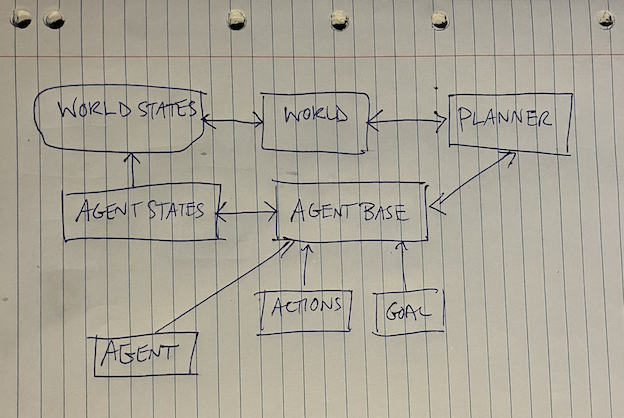 WORLD STATES
WORLD
PLANNER
AGENT STATES
AGENT BASE
ACTIONS
GOAL
AGENT